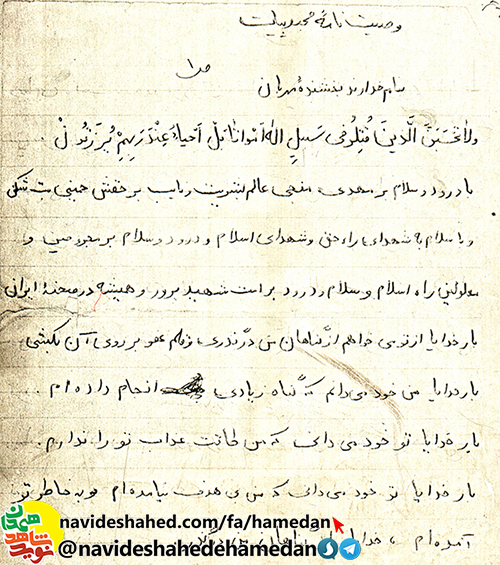 وصیت نامه محمد بیات
ص۱
بنام خداوند بخشنده مهربان
ولا تحسبن الذین قتلو فی سبیل الله امواتا بل احیاء عند ربهم یرزقون
با درود و سلام بر مهدی، منجی عالم بشریت و نایب بر حقش خمینی بت شکن
و با سلام به شهدای راه حق و شهدای اسلام و درود و سلام بر مجروحین و
معلولین راه اسلام و سلام و درود بر امت شهید پرور و همیشه در صحنهٔ ایران
بار خدایا از تو می خواهم از گناهان من در گذری و قلم عفو بر روی آن بکشی
بار خدایا من خود می دانم که گناه زیادی انجام داده ام .
بار خدایا تو خود می دانی که من طاقت عذاب تو را ندارم.
بار خدایا تو خود می دانی که من بی هدف نیامده ام و به خاطر تو
آمده ام ، خدایا
navideshahed.com/fa/hamedan
@navideshahedehamedan
نوید شاهد همدان